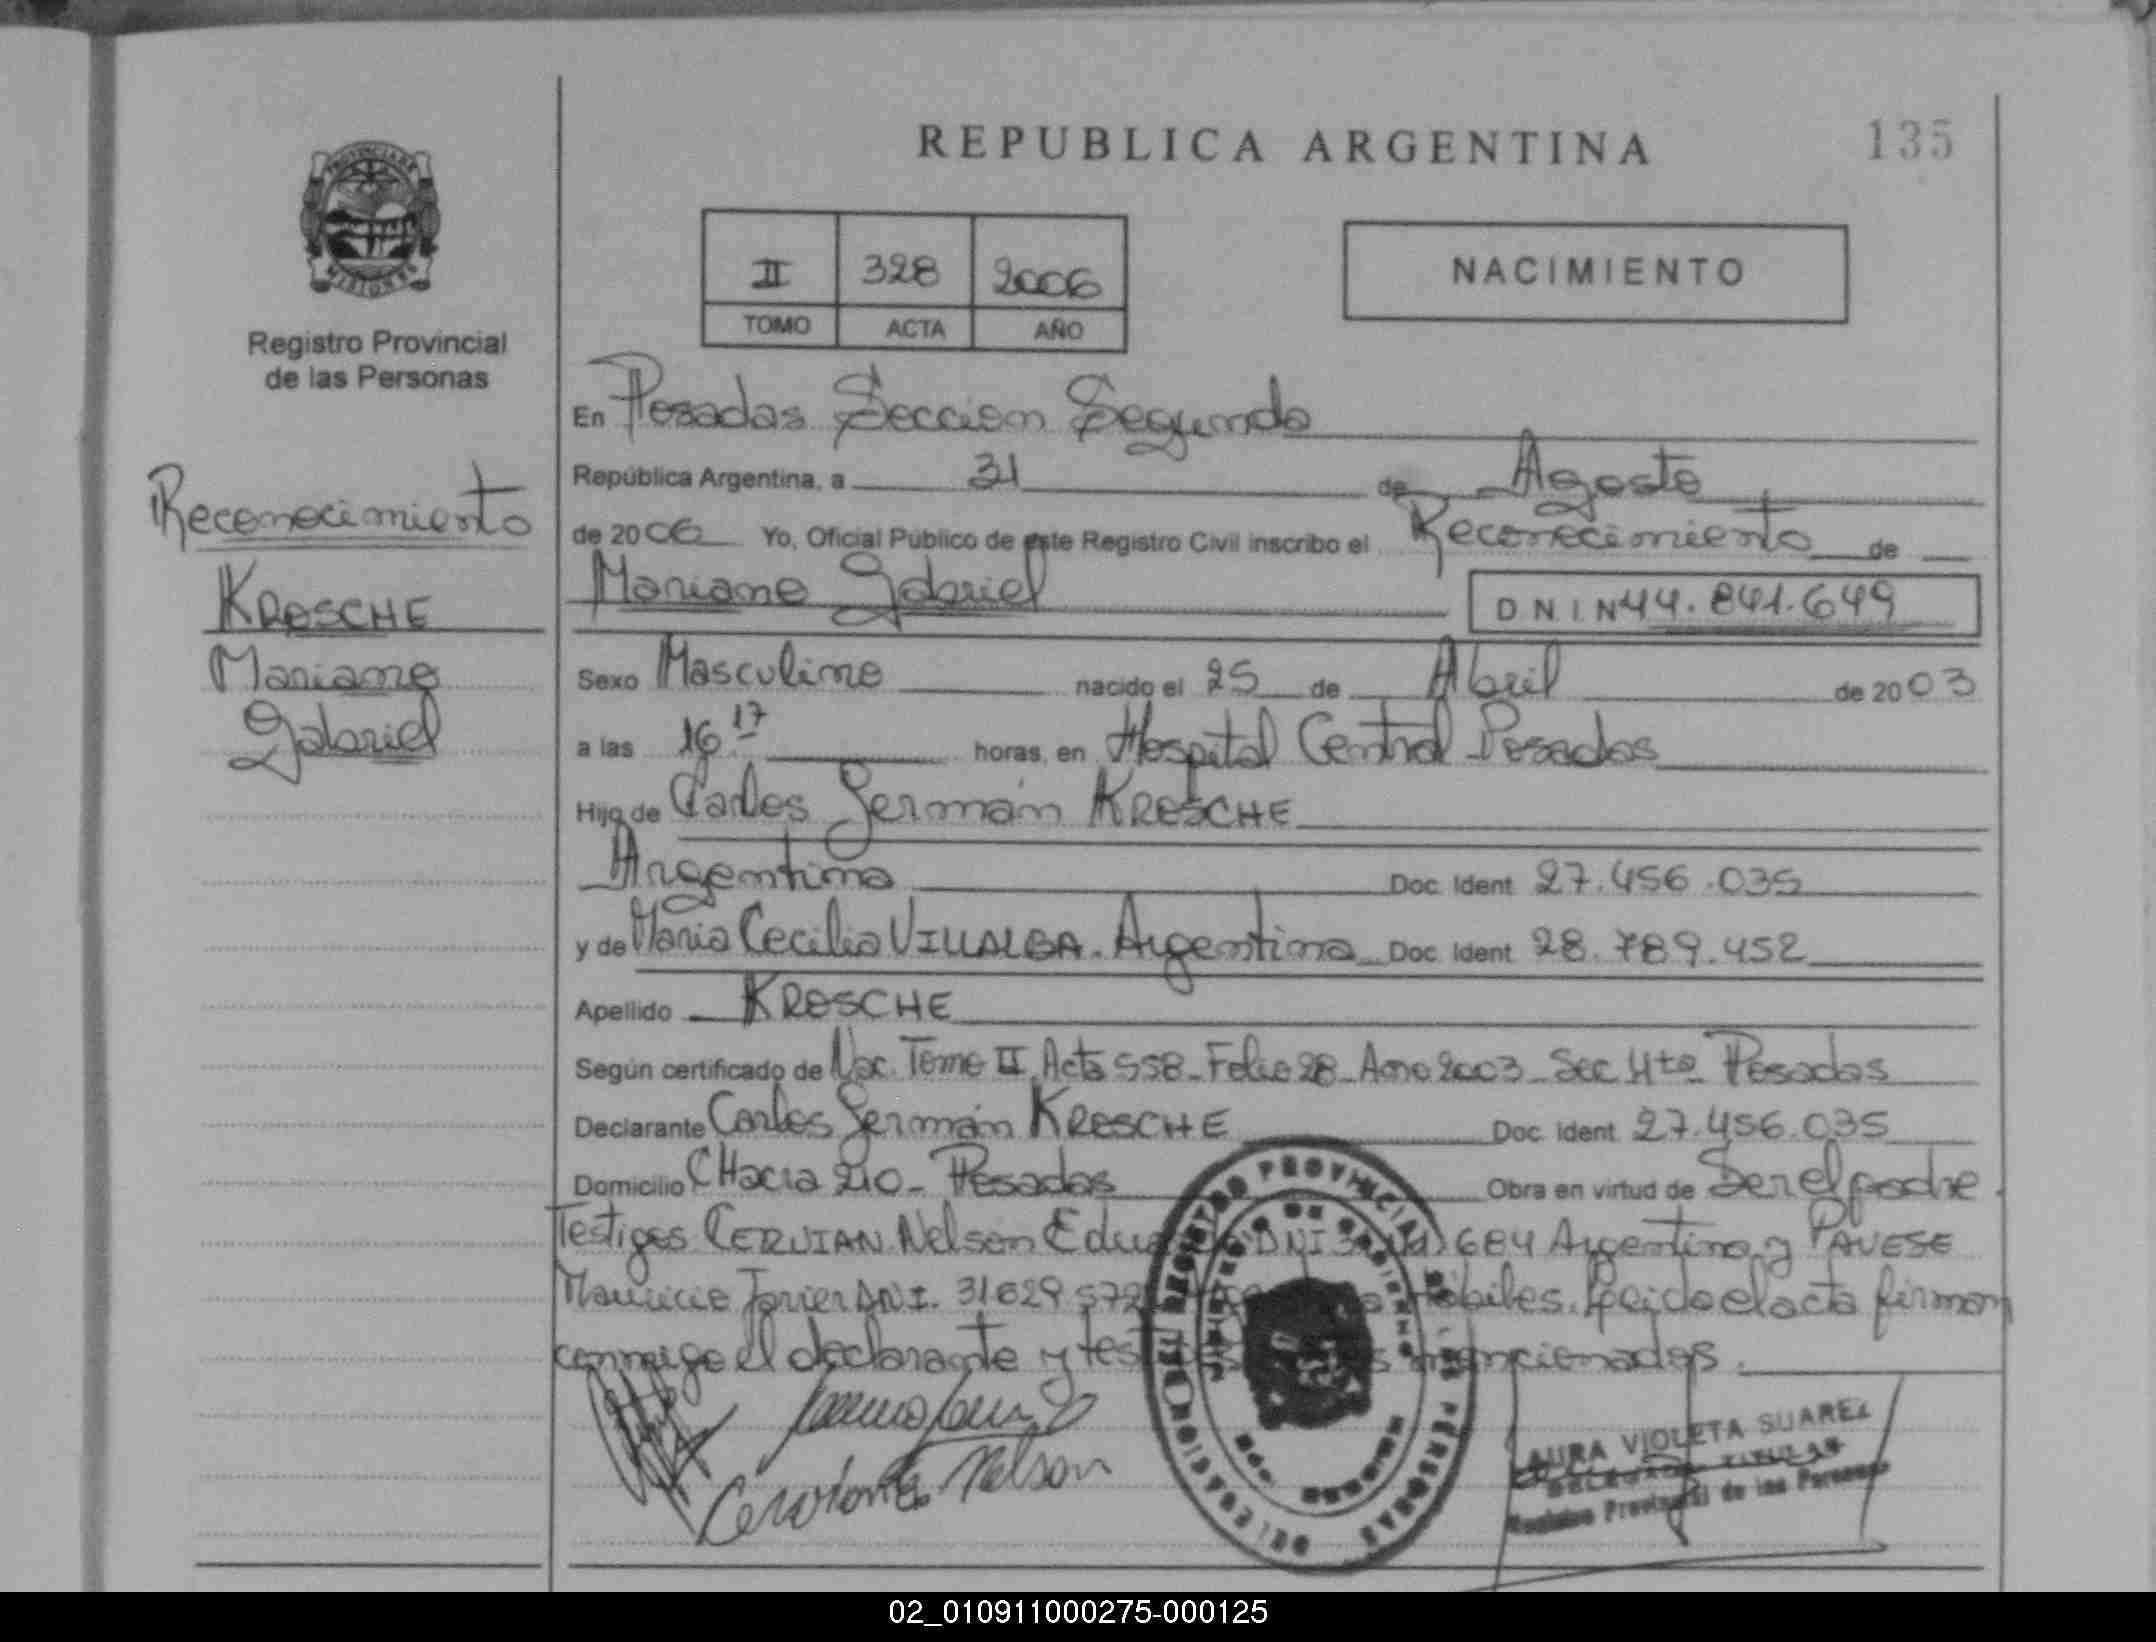 REPUBLICA ARGENTINA
135
PROVINCIA DE
MISIONES
Registro Provincial
de las Personas
II 328 2006
TOMO ACTA AÑO
NACIMIENTO
Reconocimiento
KROSCHE
Mariano
Gabriel
En Posadas Seccion Segunda
República Argentina, a 31 de Agosto
de 2006 Yo, Oficial Público de este Registro Civil inscribo el Reconocimiento de
Mariano Gabriel
D N I N 44.841.649
Sexo Masculino nacido el 25 de Abril de 2003
a las 16.17 horas, en Hospital Central Posadas
Hijo de Carlos Germán KROSCHE
Argentina Doc. Ident 27.456.035
y de Maria Cecilia VILLALBA. Argentina Doc. Ident 28.789.452
Apellido KROSCHE
Según certificado de Nac. Tomo II Acta 558 - Folio 28 - Año 2003 - Sec 4ta Posadas
Declarante Carlos Germán KROSCHE Doc. Ident. 27.456.035
Domicilio CHacra 210 - Posadas Obra en virtud de Ser el padre.
Testigos CERVIAN Nelson DNI 684 Argentino y PAVESE
Mauricio Javier DNI. 31629 572 Hábiles. Leida el acta firman
conmigo el declarante y mencionados.
Nelson
REGISTRO PROVINCIAL DE LAS PERSONAS
MINISTERIO DE GOBIERNO
LAURA VIOLETA SUAREZ
DELEGADA TITULAR
Registro Provincial de las Personas
02_010911000275-000125